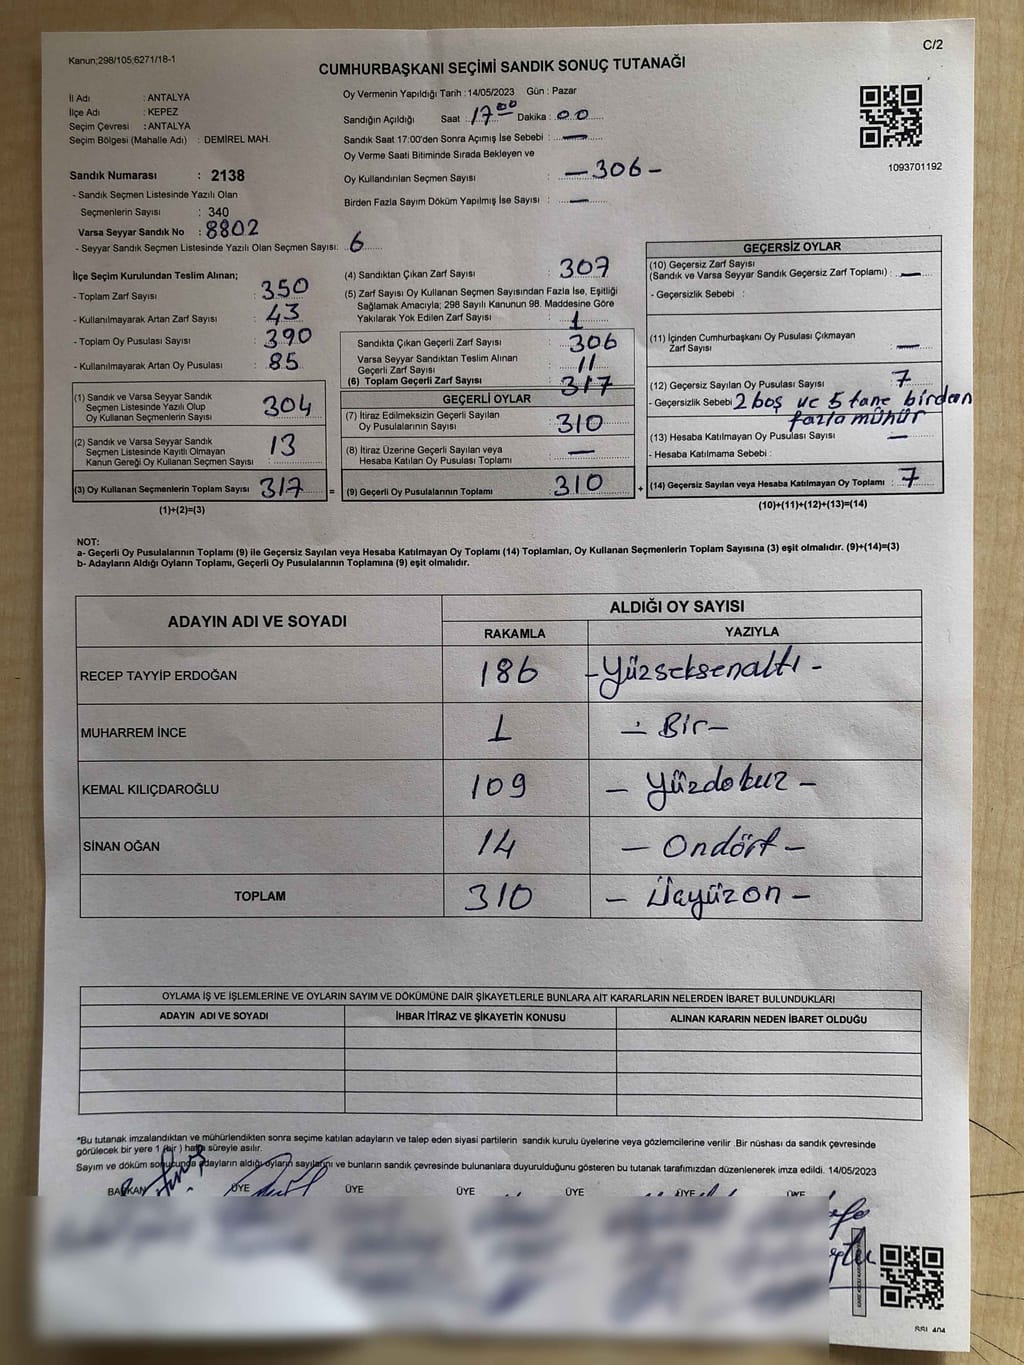 Kanun;298/105;6271/18-1
C/2
CUMHURBAŞKANI SEÇİMİ SANDIK SONUÇ TUTANAĞI
İl Adı : ANTALYA
İlçe Adı : KEPEZ
Seçim Çevresi : ANTALYA
Seçim Bölgesi (Mahalle Adı) : DEMİREL MAH.
Sandık Numarası : 2138
- Sandık Seçmen Listesinde Yazılı Olan
Seçmenlerin Sayısı : 340
Varsa Seyyar Sandık No : 8802
- Seyyar Sandık Seçmen Listesinde Yazılı Olan Seçmen Sayısı: 6
Oy Vermenin Yapıldığı Tarih : 14/05/2023 Gün : Pazar
Sandığın Açıldığı Saat : 17⁰⁰ Dakika : 00
Sandık Saat 17:00'den Sonra Açımış İse Sebebi : —
Oy Verme Saati Bitiminde Sırada Bekleyen ve
Oy Kullandırılan Seçmen Sayısı : — 306 -
Birden Fazla Sayım Döküm Yapılmış İse Sayısı : —
1093701192
İlçe Seçim Kurulundan Teslim Alınan;
- Toplam Zarf Sayısı : 350
- Kullanılmayarak Artan Zarf Sayısı : 43
- Toplam Oy Pusulası Sayısı : 390
- Kullanılmayarak Artan Oy Pusulası : 85
(1) Sandık ve Varsa Seyyar Sandık
Seçmen Listesinde Yazılı Olup
Oy Kullanan Seçmenlerin Sayısı : 304
(2) Sandık ve Varsa Seyyar Sandık
Seçmen Listesinde Kayıtlı Olmayan
Kanun Gereği Oy Kullanan Seçmen Sayısı : 13
(3) Oy Kullanan Seçmenlerin Toplam Sayısı : 317 =
(1)+(2)=(3)
(4) Sandıktan Çıkan Zarf Sayısı : 307
(5) Zarf Sayısı Oy Kullanan Seçmen Sayısından Fazla İse, Eşitliği
Sağlamak Amacıyla; 298 Sayılı Kanunun 98. Maddesine Göre
Yakılarak Yok Edilen Zarf Sayısı : 1
Sandıkta Çıkan Geçerli Zarf Sayısı : 306
Varsa Seyyar Sandıktan Teslim Alınan
Geçerli Zarf Sayısı : 11
(6) Toplam Geçerli Zarf Sayısı : 317
GEÇERLİ OYLAR
(7) İtiraz Edilmeksizin Geçerli Sayılan
Oy Pusulalarının Sayısı : 310
(8) İtiraz Üzerine Geçerli Sayılan veya
Hesaba Katılan Oy Pusulası Toplamı : —
(9) Geçerli Oy Pusulalarının Toplamı : 310 +
GEÇERSİZ OYLAR
(10) Geçersiz Zarf Sayısı
(Sandık ve Varsa Seyyar Sandık Geçersiz Zarf Toplamı) : —
- Geçersizlik Sebebi :
(11) İçinden Cumhurbaşkanı Oy Pusulası Çıkmayan
Zarf Sayısı : —
(12) Geçersiz Sayılan Oy Pusulası Sayısı : 7
- Geçersizlik Sebebi 2 boş ve 5 tane birden
fazla mühür
(13) Hesaba Katılmayan Oy Pusulası Sayısı : —
- Hesaba Katılmama Sebebi :
(14) Geçersiz Sayılan veya Hesaba Katılmayan Oy Toplamı : 7
(10)+(11)+(12)+(13)=(14)
NOT:
a- Geçerli Oy Pusulalarının Toplamı (9) ile Geçersiz Sayılan veya Hesaba Katılmayan Oy Toplamı (14) Toplamları, Oy Kullanan Seçmenlerin Toplam Sayısına (3) eşit olmalıdır. (9)+(14)=(3)
b- Adayların Aldığı Oyların Toplamı, Geçerli Oy Pusulalarının Toplamına (9) eşit olmalıdır.
ADAYIN ADI VE SOYADI
ALDIĞI OY SAYISI
RAKAMLA YAZIYLA
RECEP TAYYİP ERDOĞAN 186 - Yüzseksenaltı -
MUHARREM İNCE 1 - Bir -
KEMAL KILIÇDAROĞLU 109 - Yüzdokuz -
SİNAN OĞAN 14 - Ondört -
TOPLAM 310 - Üçyüzon -
OYLAMA İŞ VE İŞLEMLERİNE VE OYLARIN SAYIM VE DÖKÜMÜNE DAİR ŞİKAYETLERLE BUNLARA AİT KARARLARIN NELERDEN İBARET BULUNDUKLARI
ADAYIN ADI VE SOYADI İHBAR İTİRAZ VE ŞİKAYETİN KONUSU ALINAN KARARIN NEDEN İBARET OLDUĞU
*Bu tutanak imzalandıktan ve mühürlendikten sonra seçime katılan adayların ve talep eden siyasi partilerin sandık kurulu üyelerine veya gözlemcilerine verilir .Bir nüshası da sandık çevresinde
görülecek bir yere 1 (bir ) hafta süreyle asılır.
Sayım ve döküm sonucunda adayların aldığı oyların sayılarını ve bunların sandık çevresinde bulunanlara duyurulduğunu gösteren bu tutanak tarafımızdan düzenlenerek imza edildi. 14/05/2023
BAŞKAN ÜYE ÜYE ÜYE ÜYE ÜYE ÜYE